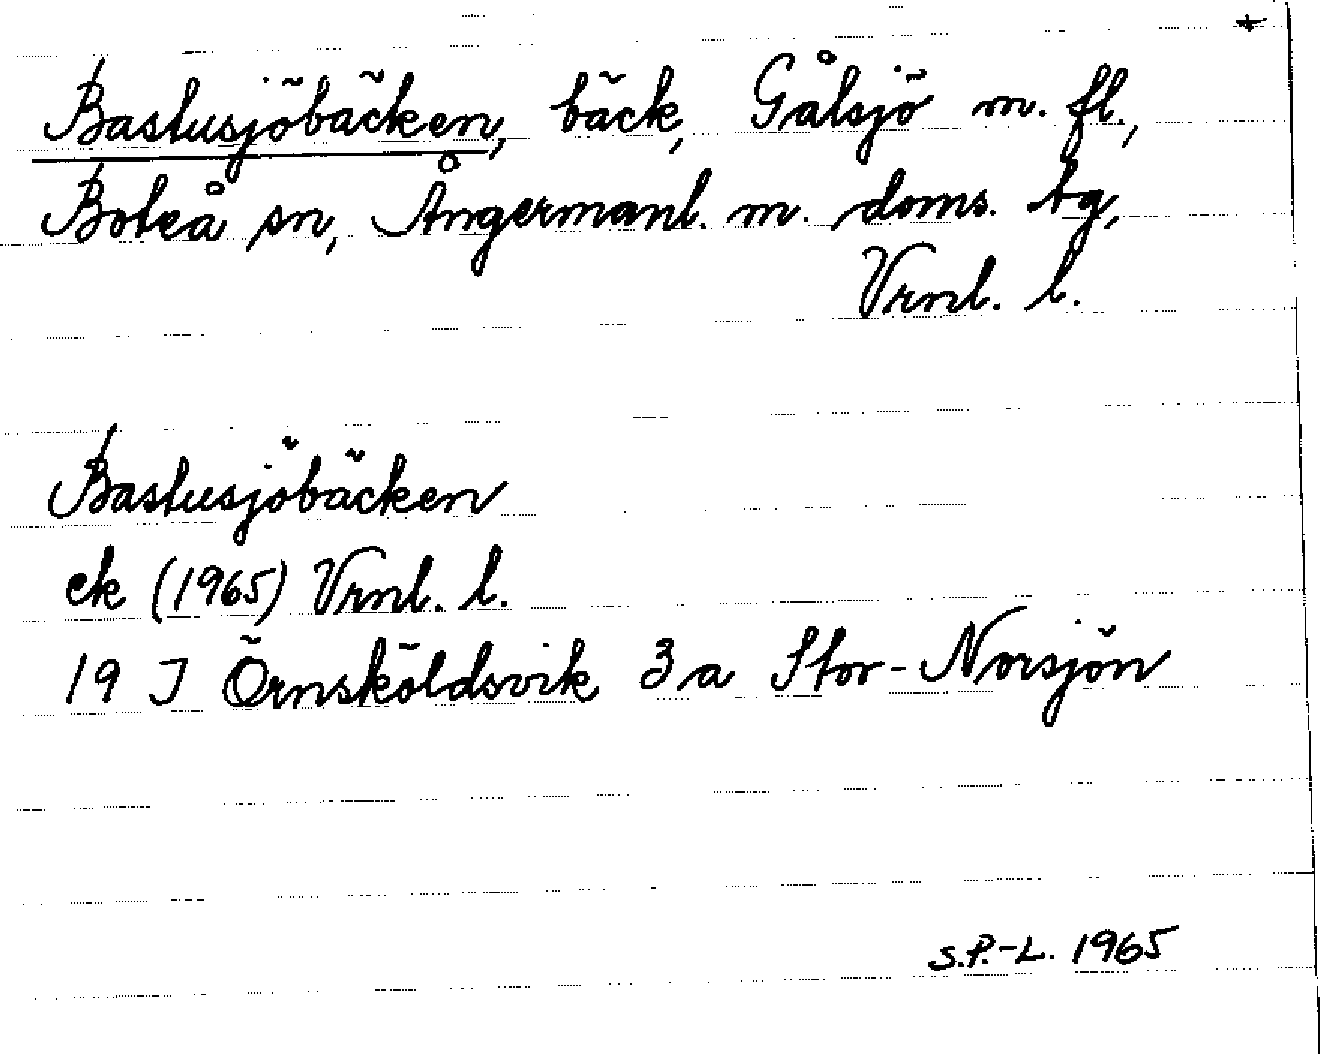 +
Bastusjöbäcken, bäck, Gålsjö m. fl.,
Boteå sn, Ångermanl. m. doms. tg,
Vrnl. l.
Bastusjöbäcken
ek (1965) Vrnl. l.
19 J Örnsköldsvik 3a Stor-Norsjön
S.P.-L. 1965